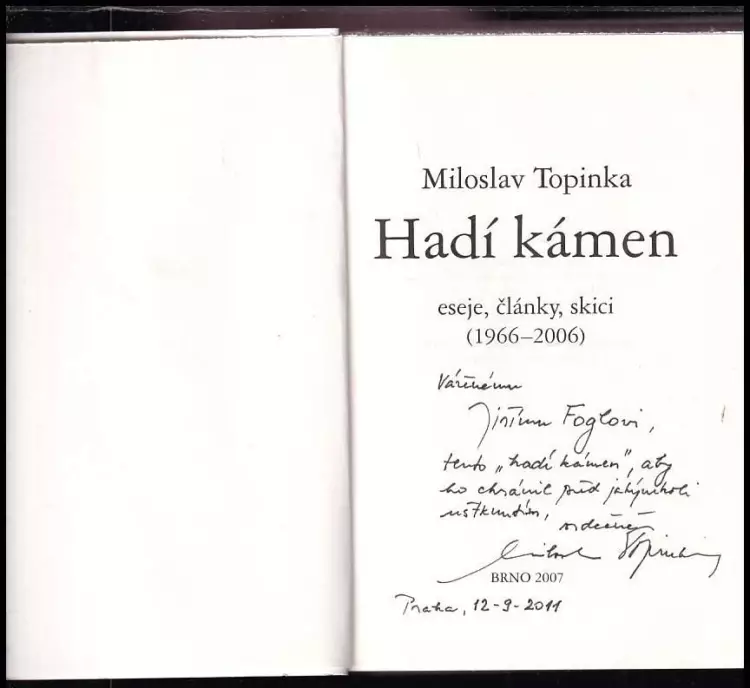 Miloslav Topinka
Hadí kámen
eseje, články, skici
(1966–2006)
Váženému
Jiřímu Foglovi,
tento „hadí kámen“, aby
ho chránil před jakýmkoli
uštknutím,
srdečně
Miloslav Topinka
BRNO 2007
Praha, 12-9-2011